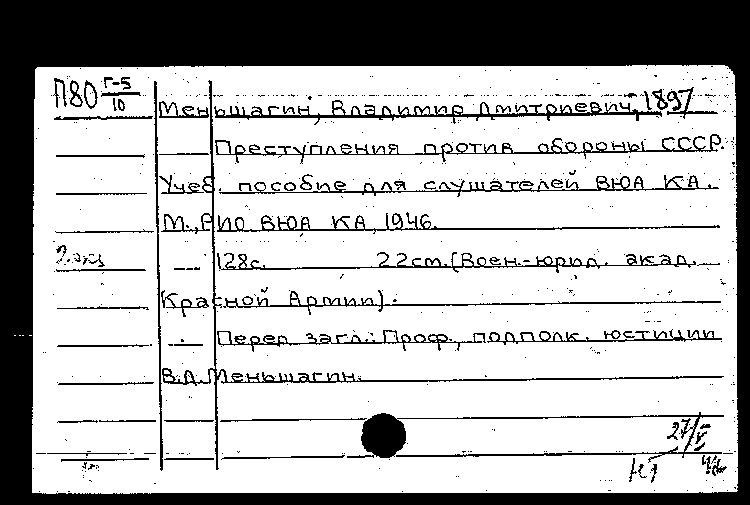 П80 Г-5/10
Меньшагин, Владимир Дмитриевич, 1897
Преступления против обороны СССР.
Учеб. пособие для слушателей ВЮА КА.
М., РИО ВЮА КА, 1946.
2 экз
--- 128с. 22см. (Воен.-юрид. акад.
Красной Армии).
Перед загл.: Проф., подполк. юстиции
В.Д. Меньшагин.
27/V